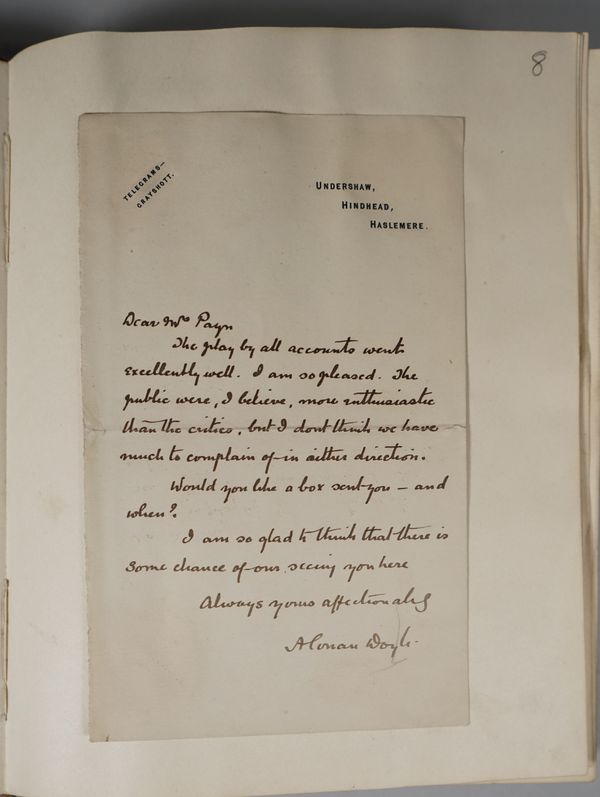 8
TELEGRAMS—
GRAYSHOTT.
UNDERSHAW,
HINDHEAD,
HASLEMERE.
Dear Mrs Payn
The play by all accounts went
excellently well. I am so pleased. The
public were, I believe, more enthusiastic
than the critics, but I dont think we have
much to complain of in either direction.
Would you like a box sent you – and
when?
I am so glad to think that there is
some chance of our seeing you here
Always yours affectionately
A Conan Doyle.